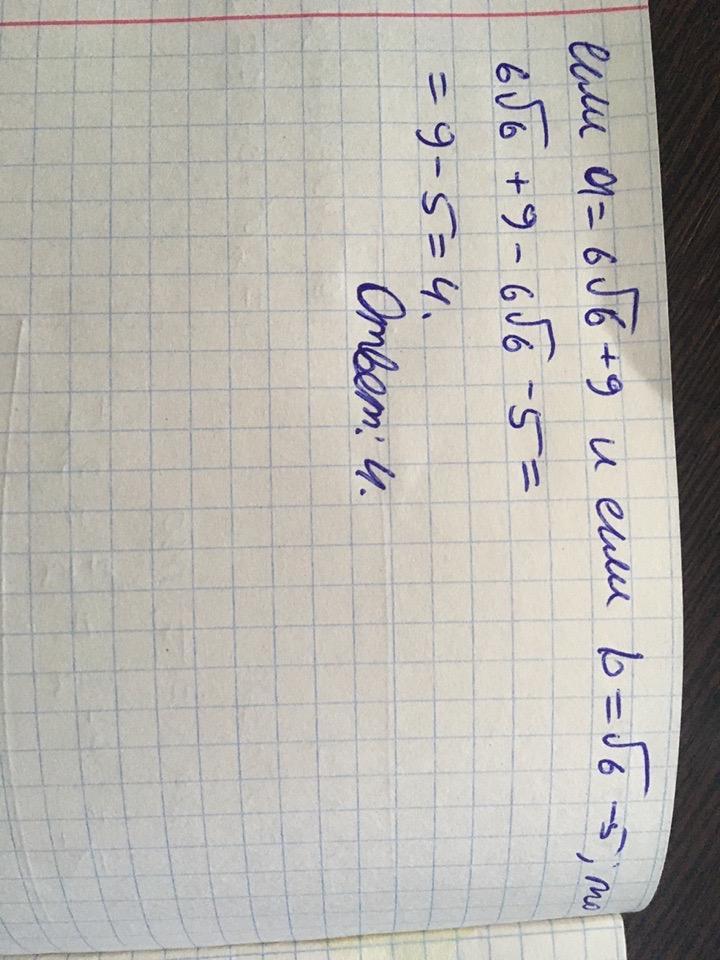 если a = 6√6 + 9 и если b = √6 - 5, то
6√6 + 9 - 6√6 - 5 =
= 9 - 5 = 4.
Ответ: 4.